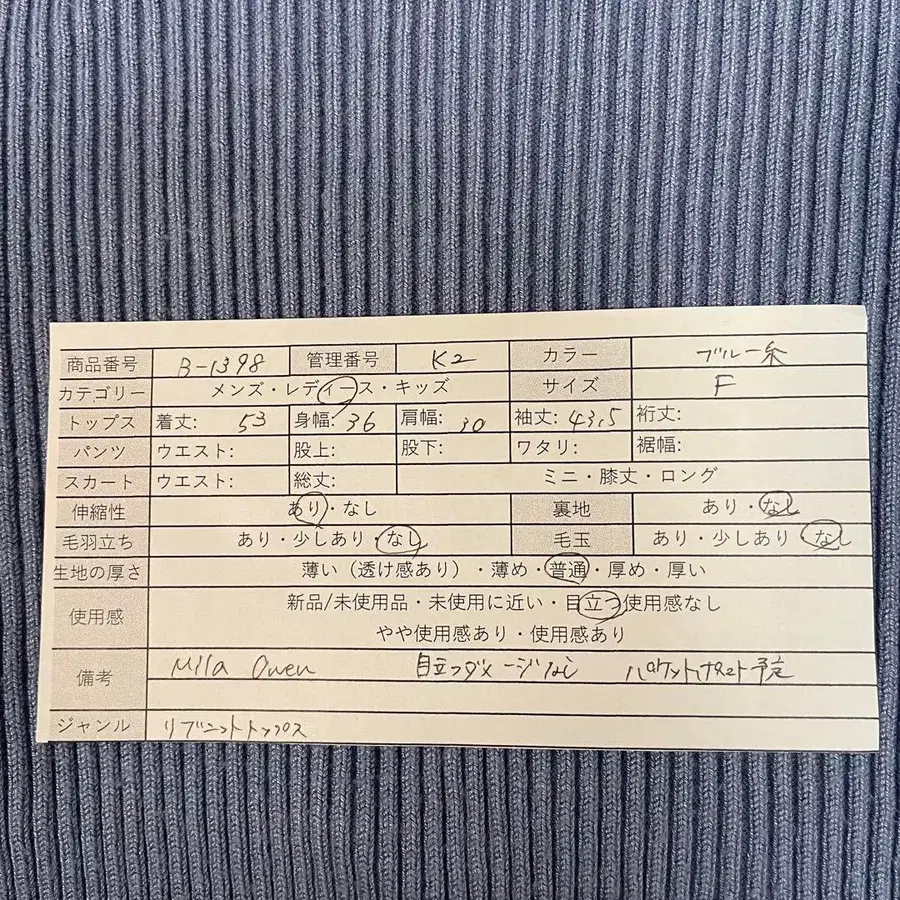 商品番号 B-1398 管理番号 K2 カラー ブルー系
カテゴリー メンズ・レディース・キッズ サイズ F
トップス 着丈: 53 身幅: 36 肩幅: 30 袖丈: 43.5 裄丈:
パンツ ウエスト: 股上: 股下: ワタリ: 裾幅:
スカート ウエスト: 総丈: ミニ・膝丈・ロング
伸縮性 あり・なし 裏地 あり・なし
毛羽立ち あり・少しあり・なし 毛玉 あり・少しあり・なし
生地の厚さ 薄い（透け感あり）・薄め・普通・厚め・厚い
使用感 新品/未使用品・未使用に近い・目立つ使用感なし
やや使用感あり・使用感あり
備考 Mila Owen 目立つダメージなし 予定
ジャンル リブニットトップス